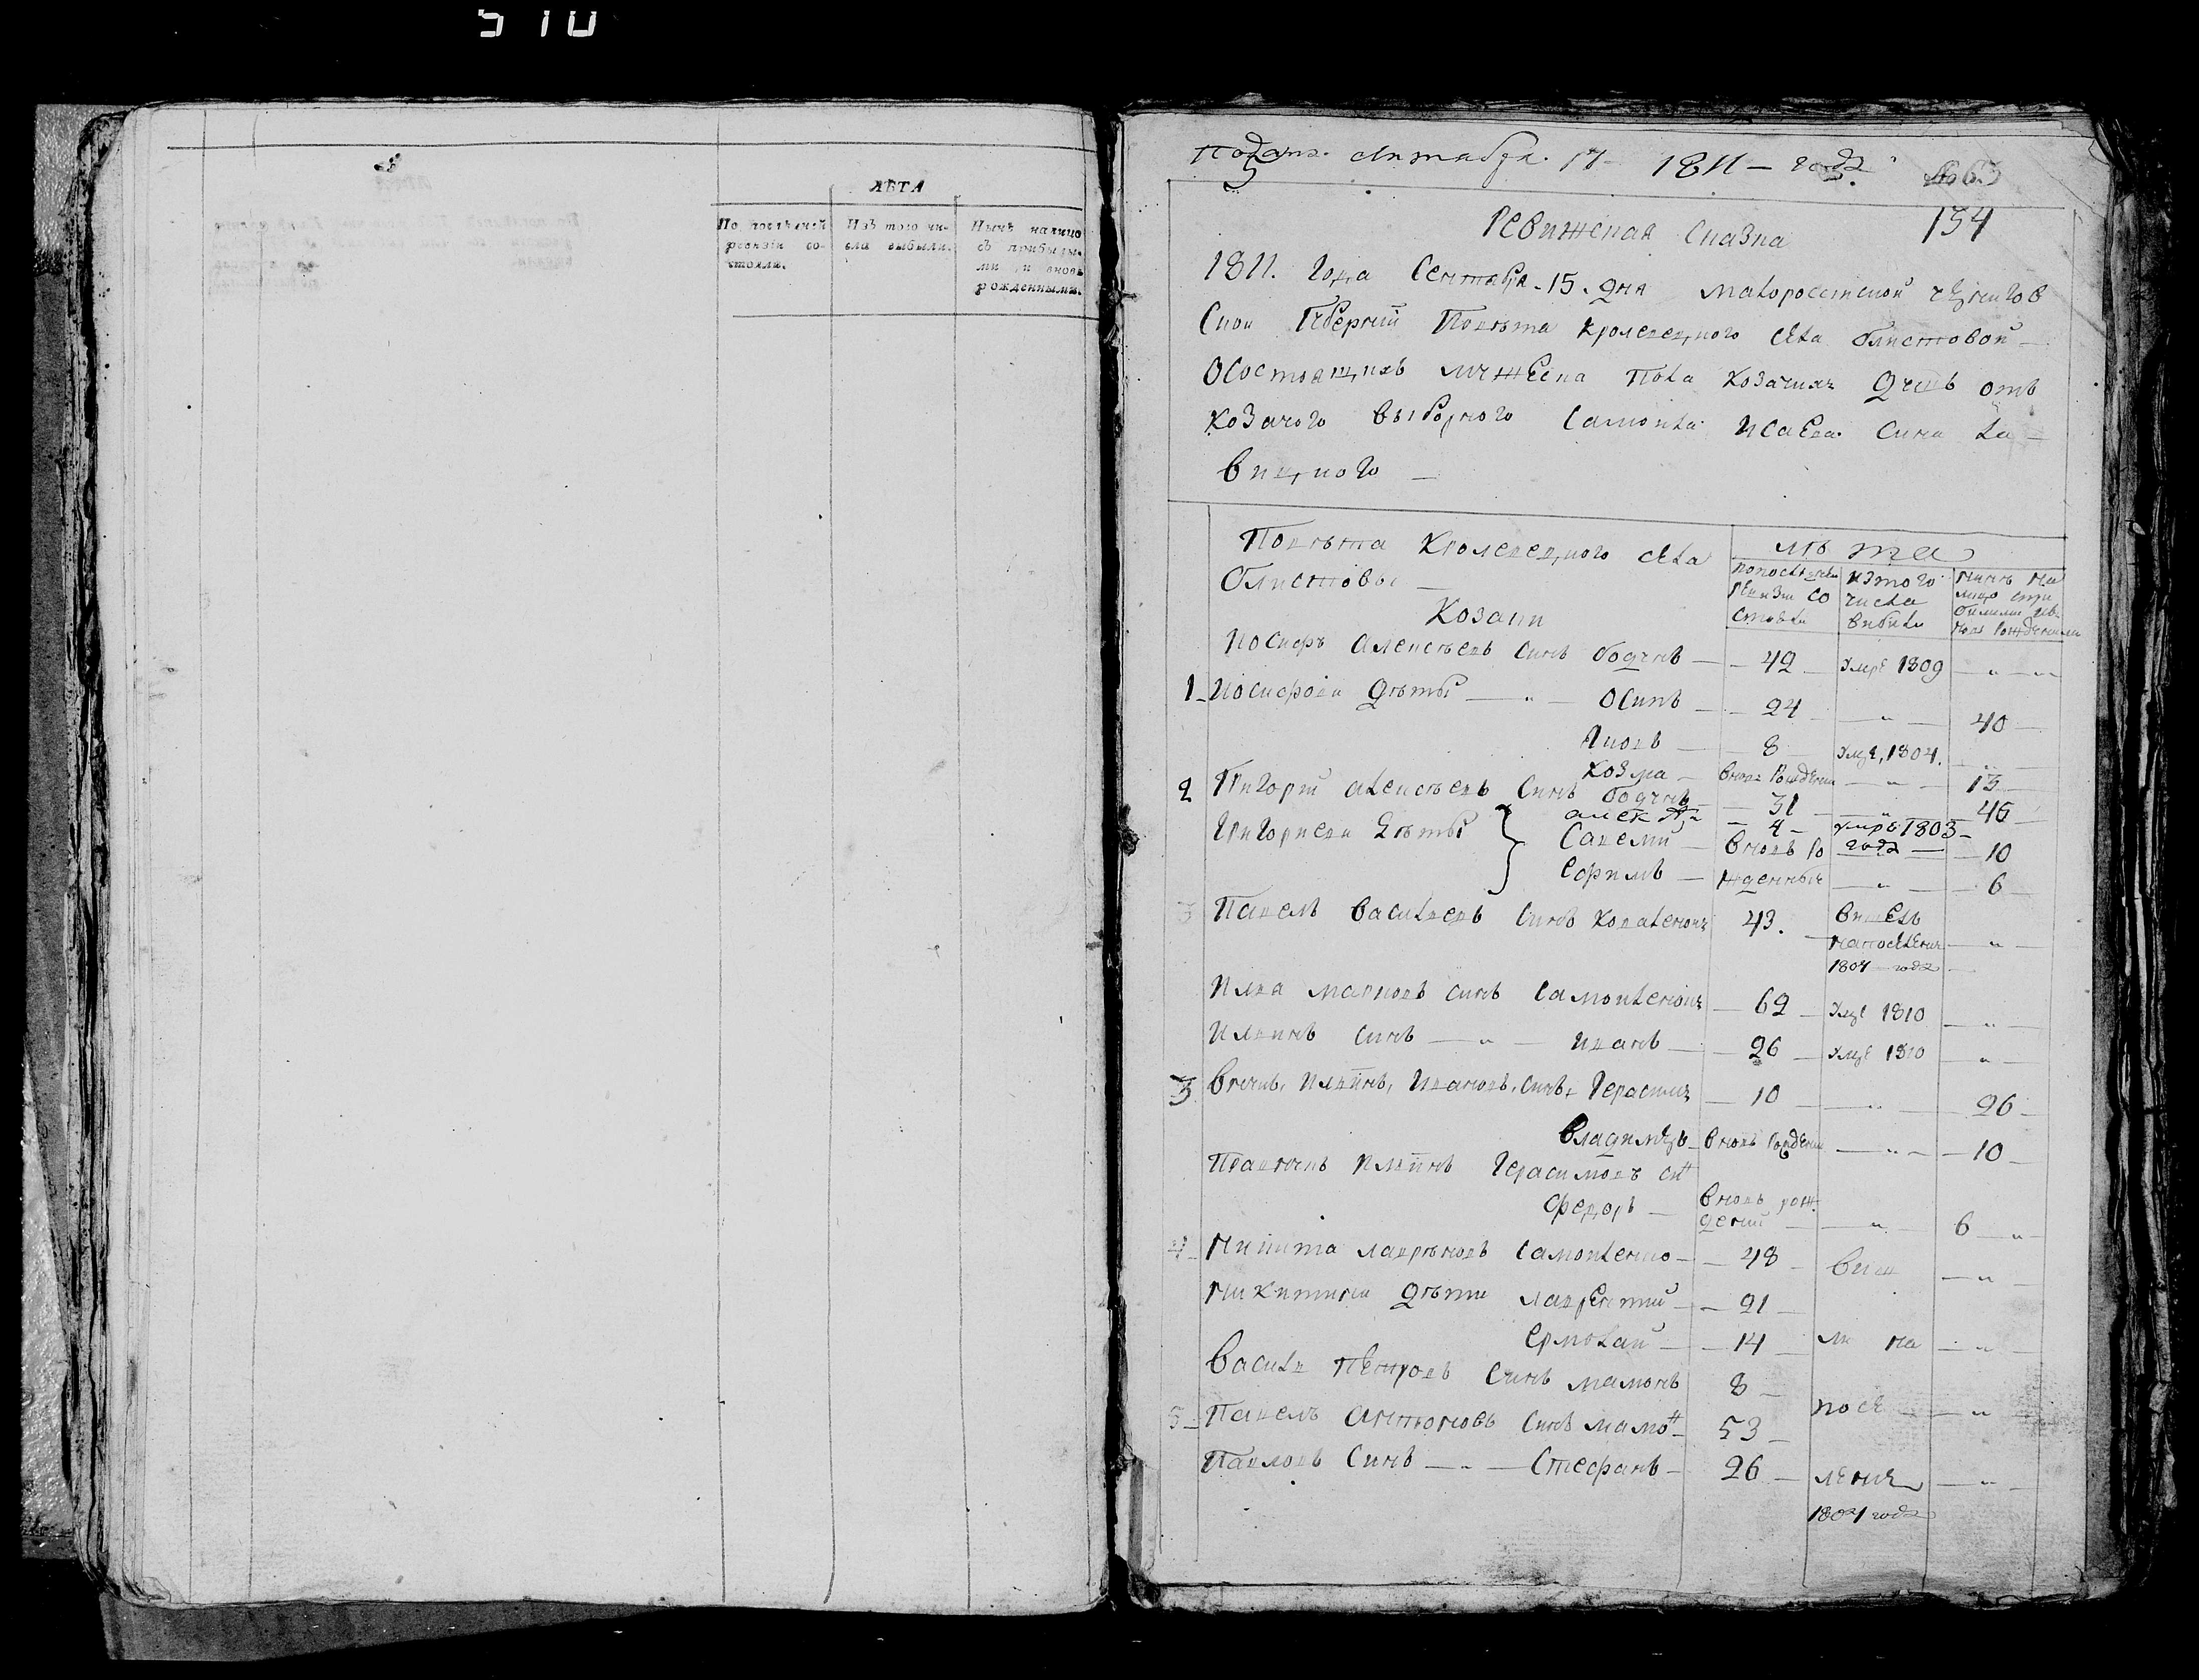 510
ЛѢТА
По послѣдней
ревизіи со-
стояло.
Изъ того чи-
сла выбыли.
Нынѣ налицо
съ прибылы-
ми и вновь
рожденными.
Подана октября 17 1811 – года
134
Ревижская сказка
1811. Года Сентября 15. дня малоросийской чернигов
ской Губерний Повѣта кролевецкого села блистовой
О состоящихъ мужеска пола козачихъ душъ отъ
козачого выборного Самойла Исаева сина ла-
вицкого
Повѣта кролевецкого села
блистовы
Козаки
лѣта
по последней
ревизии со
стояли
из того
числа
вибыли
нинѣ на
лицо спри
билими ив
новь рожденими
Иосифъ алексѣевъ синъ бодунъ 42 умре 1809
1 Иосифови дѣты Осипъ 24 40
Яковъ 8 умре, 1804.
козма вновь рожденъ 13
2 Григорий алексѣевъ синъ бодунъ 31 40
Григориеви дѣты алекѣй 4 умре 1803
Савелий вновь ро года 10
Ефимъ жденные 6
3 Павелъ васильевъ синъ коваленокъ 43. вишелъ
на поселение
1804 года
Илья марковъ синъ самойленокъ 62 умре 1810
Ильинъ синъ иванъ 26 умре 1810
3 внукъ, Ильинъ, Ивановъ, синъ, Герасимъ 10 26
владимѣръ вновь рожденъ 10
Правнукъ Ильинъ Герасимовъ син
федоръ вновь рож
дений 6
4 Никита лаврѣновъ самойленко 48 виш
Никитини дѣти лаврентий 21
Ермолай 14 ли на
василь петровъ синъ мамонъ 8
5 Павелъ антоновъ синъ мамон 53 посе
Павловъ синъ Стефанъ 26 ление
1804 года